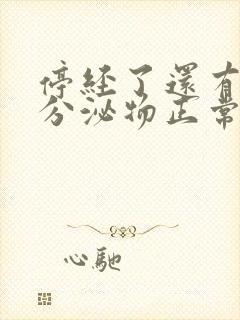 停經了還有
分泌物正常
心馳